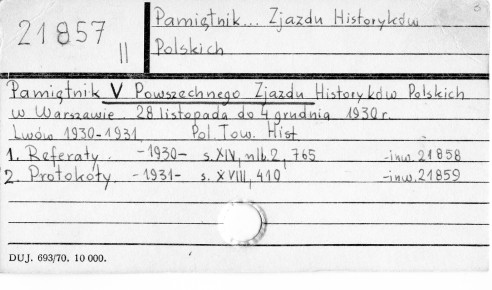 21857
II
Pamiętnik... Zjazdu Historyków
Polskich
Pamiętnik V Powszechnego Zjazdu Historyków Polskich
w Warszawie 28 listopada do 4 grudnia 1930 r.
Lwów 1930-1931 Pol. Tow. Hist
1. Referaty. -1930- s. XIV, nlb. 2, 765 -inw. 21858
2. Protokoły. -1931- s. XVIII, 410 -inw. 21859
DUJ. 693/70. 10 000.